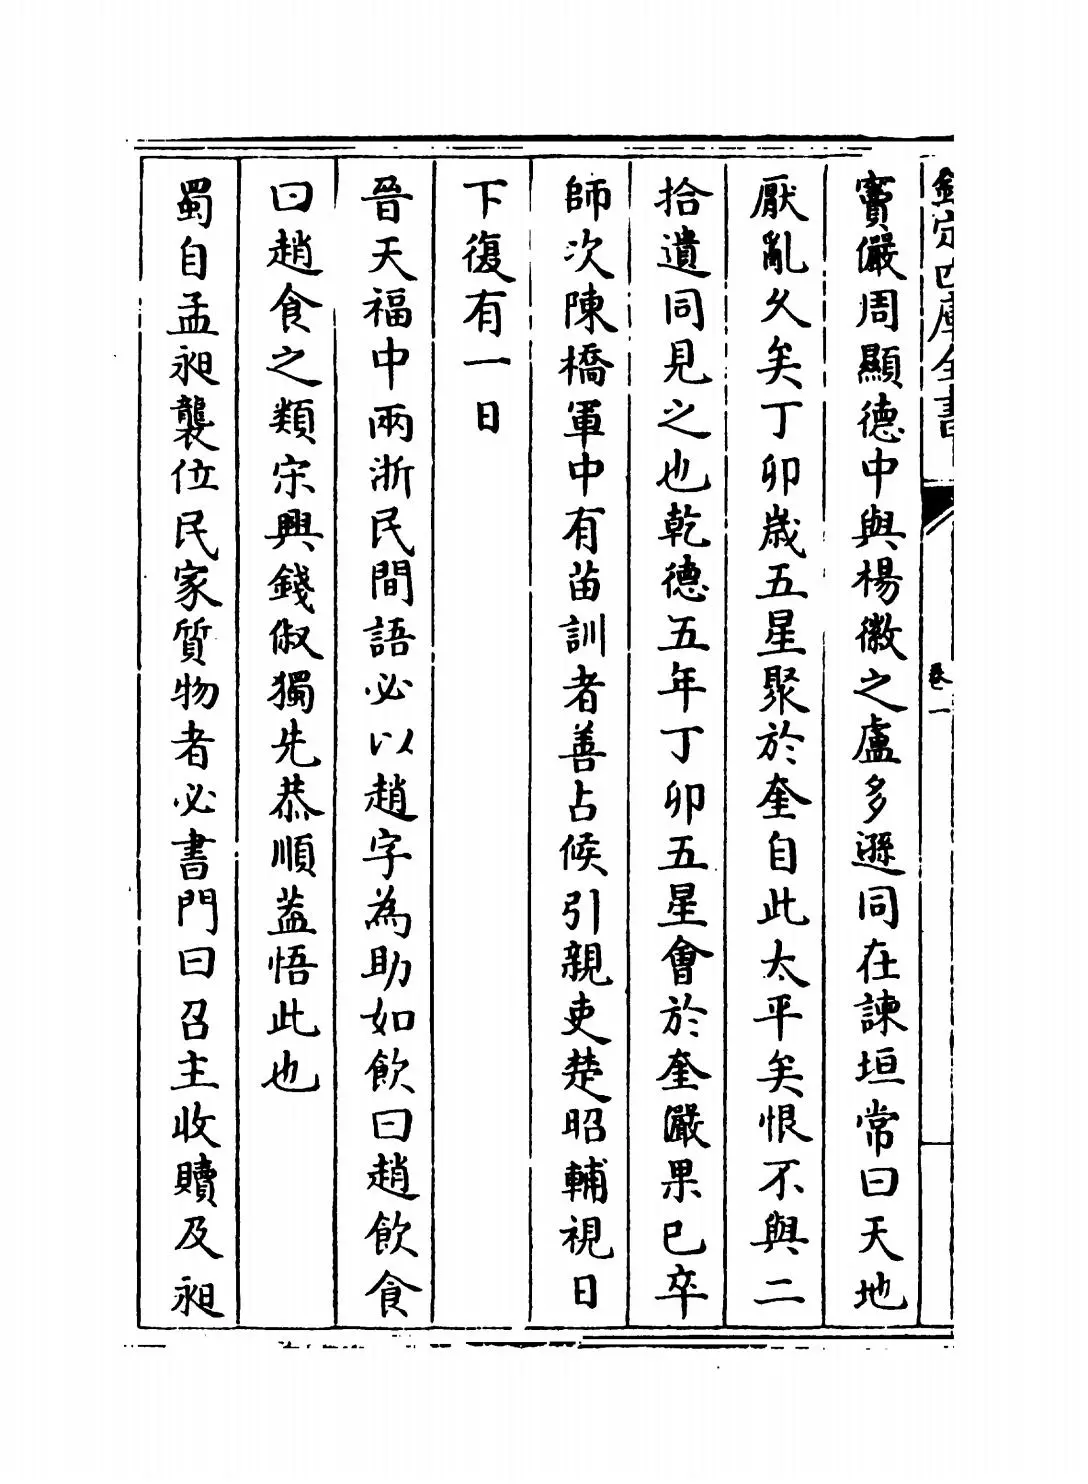 欽定四庫全書
卷一
竇儼周顯德中與楊徽之盧多遜同在諫垣常曰天地
厭亂久矣丁卯歲五星聚於奎自此太平矣恨不與二
拾遺同見之也乾德五年丁卯五星會於奎儼果已卒
師次陳橋軍中有苗訓者善占候引親吏楚昭輔視日
下復有一日
晉天福中兩浙民間語必以趙字為助如飲曰趙飲食
曰趙食之類宋興錢俶獨先恭順蓋悟此也
蜀自孟昶襲位民家質物者必書門曰召主收贖及昶